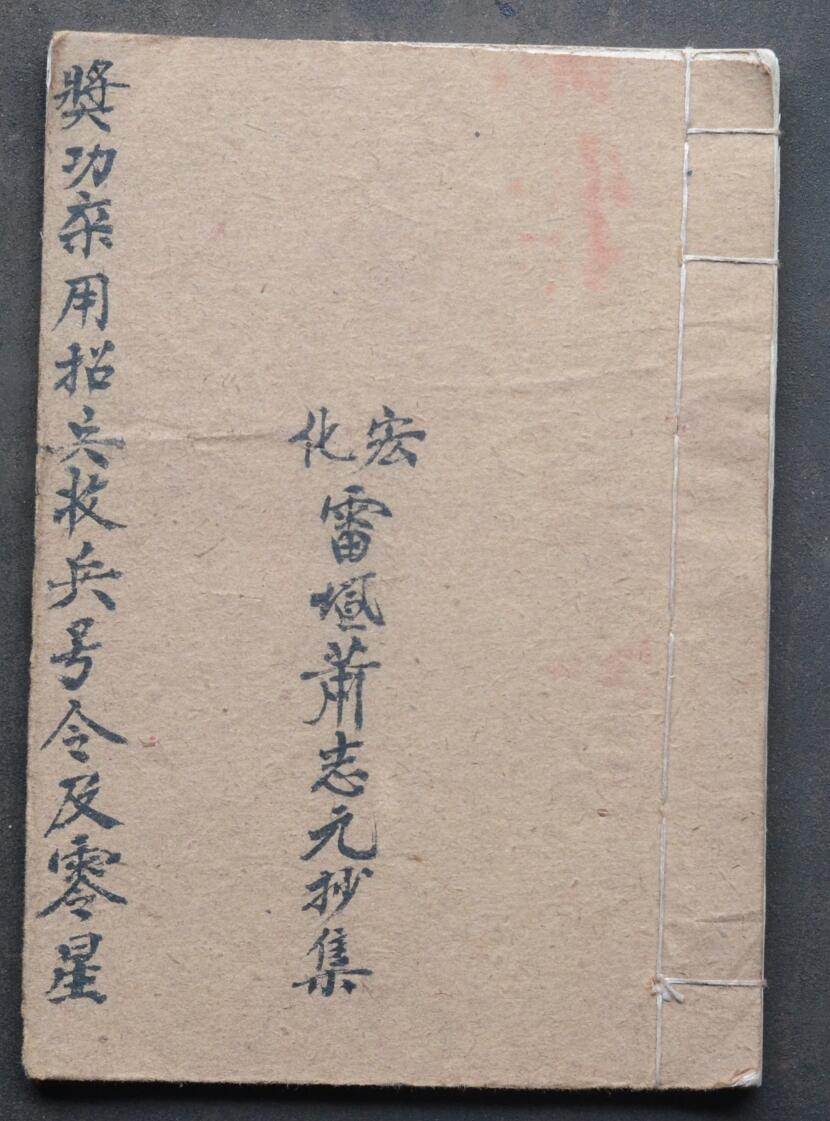 宏化
雷壇蕭志元抄集
獎功用招兵收兵号令及零星